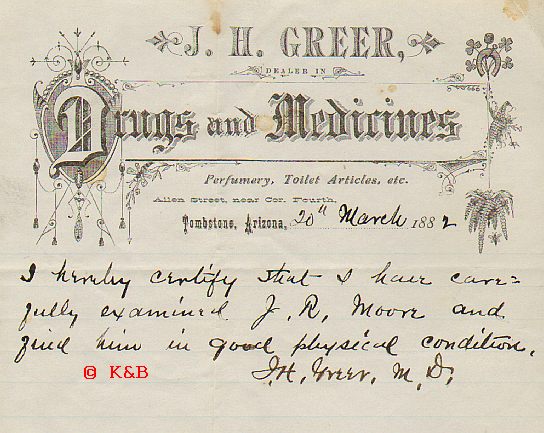 J. H. GREER,
DEALER IN
Drugs and Medicines
Perfumery, Toilet Articles, etc.
Allen Street, near Cor. Fourth,
Tombstone, Arizona, 20th March 1882
I hereby certify that I have care=
fully examined J. R. Moore and
find him in good physical condition.
J. H. Greer, M. D.
© K&B